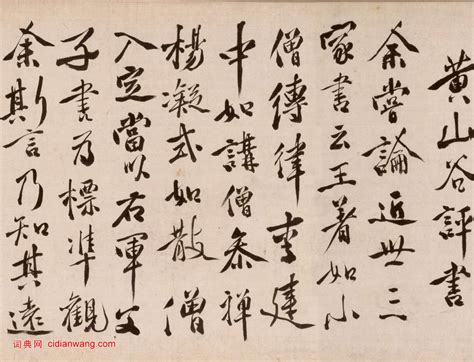 黃山谷評書
余嘗論近世三
家書云王著如小
僧傳律李建
中如講僧參禪
楊凝式如散僧
入定當以右軍父
子書為標準觀
余斯言乃知其遠
词典网 cidianwang.com